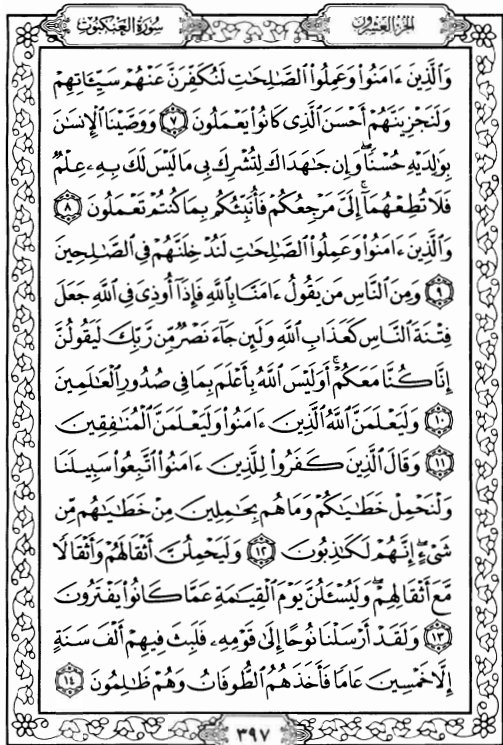 الجزء العشرون سورة العنكبوت
وَٱلَّذِينَ ءَامَنُوا۟ وَعَمِلُوا۟ ٱلصَّٰلِحَٰتِ لَنُكَفِّرَنَّ عَنْهُمْ سَيِّـَٔاتِهِمْ
وَلَنَجْزِيَنَّهُمْ أَحْسَنَ ٱلَّذِى كَانُوا۟ يَعْمَلُونَ ٧ وَوَصَّيْنَا ٱلْإِنسَٰنَ
بِوَٰلِدَيْهِ حُسْنًا ۖ وَإِن جَٰهَدَاكَ لِتُشْرِكَ بِى مَا لَيْسَ لَكَ بِهِۦ عِلْمٌ
فَلَا تُطِعْهُمَآ ۚ إِلَىَّ مَرْجِعُكُمْ فَأُنَبِّئُكُم بِمَا كُنتُمْ تَعْمَلُونَ ٨
وَٱلَّذِينَ ءَامَنُوا۟ وَعَمِلُوا۟ ٱلصَّٰلِحَٰتِ لَنُدْخِلَنَّهُمْ فِى ٱلصَّٰلِحِينَ
٩ وَمِنَ ٱلنَّاسِ مَن يَقُولُ ءَامَنَّا بِٱللَّهِ فَإِذَآ أُوذِىَ فِى ٱللَّهِ جَعَلَ
فِتْنَةَ ٱلنَّاسِ كَعَذَابِ ٱللَّهِ وَلَئِن جَآءَ نَصْرٌ مِّن رَّبِّكَ لَيَقُولُنَّ
إِنَّا كُنَّا مَعَكُمْ ۚ أَوَلَيْسَ ٱللَّهُ بِأَعْلَمَ بِمَا فِى صُدُورِ ٱلْعَٰلَمِينَ
١٠ وَلَيَعْلَمَنَّ ٱللَّهُ ٱلَّذِينَ ءَامَنُوا۟ وَلَيَعْلَمَنَّ ٱلْمُنَٰفِقِينَ
١١ وَقَالَ ٱلَّذِينَ كَفَرُوا۟ لِلَّذِينَ ءَامَنُوا۟ ٱتَّبِعُوا۟ سَبِيلَنَا
وَلْنَحْمِلْ خَطَٰيَٰكُمْ وَمَا هُم بِحَٰمِلِينَ مِنْ خَطَٰيَٰهُم مِّن
شَىْءٍ ۖ إِنَّهُمْ لَكَٰذِبُونَ ١٢ وَلَيَحْمِلُنَّ أَثْقَالَهُمْ وَأَثْقَالًا
مَّعَ أَثْقَالِهِمْ ۖ وَلَيُسْـَٔلُنَّ يَوْمَ ٱلْقِيَٰمَةِ عَمَّا كَانُوا۟ يَفْتَرُونَ
١٣ وَلَقَدْ أَرْسَلْنَا نُوحًا إِلَىٰ قَوْمِهِۦ فَلَبِثَ فِيهِمْ أَلْفَ سَنَةٍ
إِلَّا خَمْسِينَ عَامًا فَأَخَذَهُمُ ٱلطُّوفَانُ وَهُمْ ظَٰلِمُونَ ١٤
٣٩٧